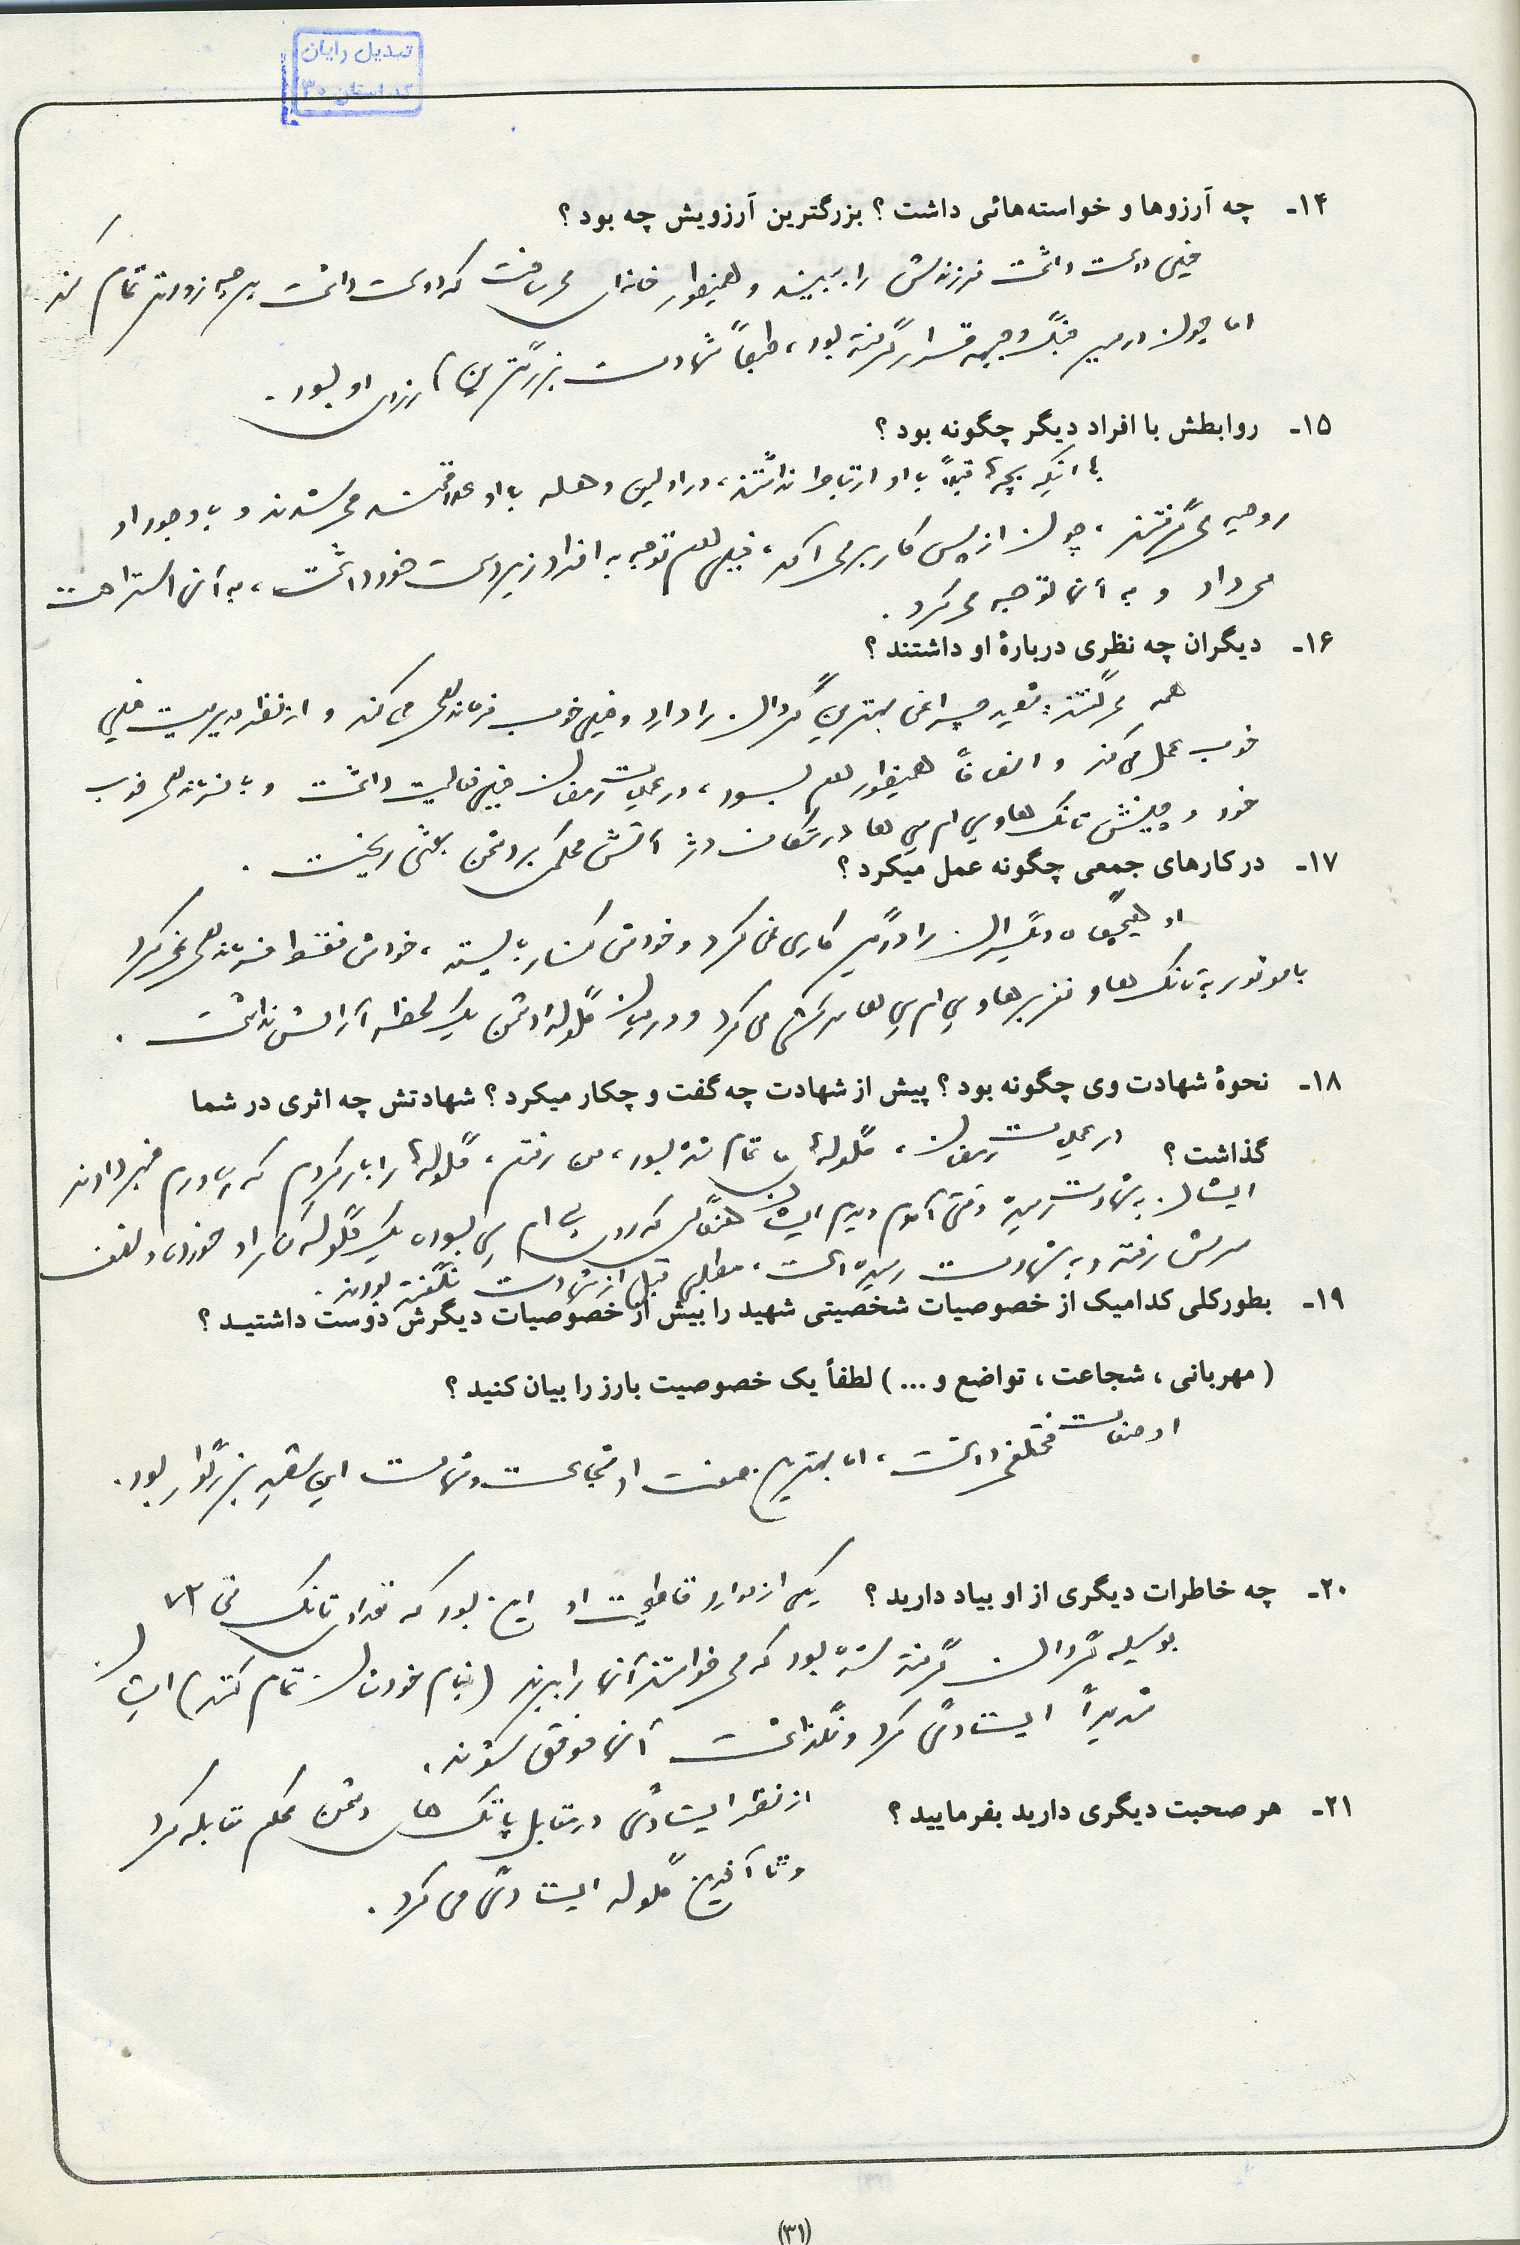 تبدیل رایان
کد استان ۳۰
۱۴- چه آرزوها و خواسته‌هائی داشت ؟ بزرگترین آرزویش چه بود ؟
خیلی دوست داشت فرزندش را ببیند و همینطور خانه‌ای می‌ساخت که دوست داشت هر چه زودتر تمام کند
اما چون در مسیر جنگ و جبهه قرار گرفته بود ، طبعاً شهادت بزرگترین آرزوی او بود .
۱۵- روابطش با افراد دیگر چگونه بود ؟
با اینکه بچه‌ها قبلاً با او ارتباط نداشتند ، در اولین وهله به او علاقمند می‌شدند و با وجود او
روحیه می‌گرفتند ، چون از پس کار برمی‌آمد ، خیلی هم توجه به افراد زیردست خود داشت ، به آنها استراحت
می‌داد و به آنها توجه می‌کرد .
۱۶- دیگران چه نظری دربارهٔ او داشتند ؟
همه می‌گفتند : شهید چراغی بهترین گردان را دارد و خیلی خوب فرماندهی می‌کند و از نظر مدیریت خیلی
خوب عمل می‌کند و اتفاقاً همینطور هم بود ، در عملیات رمضان خیلی فعالیت داشت و با فرماندهی خوب
خود و چینش تانک‌ها و پی ام پی ها در شکاف دژ آتش محکمی بر دشمن بعثی ریخت .
۱۷- در کارهای جمعی چگونه عمل میکرد ؟
او هیچگاه دیگران را درگیر کاری نمی‌کرد و خودش کنار بایستد ، خودش فقط فرماندهی نمی‌کرد
با موتور به تانک‌ها و نفربرها و پی ام پی ها سرکشی می‌کرد و در میان گلوله دشمن یک لحظه آرامش نداشت .
۱۸- نحوهٔ شهادت وی چگونه بود ؟ پیش از شهادت چه گفت و چکار میکرد ؟ شهادتش چه اثری در شما
گذاشت ؟ در عملیات رمضان ، گلوله‌های ما تمام شده بود ، من رفتم ، گلوله‌ها را بار کردم که بیاورم خبر دادند
ایشان به شهادت رسیده وقتی آمدم دیدم ایشان هنگامی که روی پی ام پی بوده یک گلوله به او خورده و نصف
سرش رفته و به شهادت رسیده است . مطلبی قبل از شهادت نگفته بودند .
۱۹- بطورکلی کدامیک از خصوصیات شخصیتی شهید را بیش از خصوصیات دیگرش دوست داشتید ؟
( مهربانی ، شجاعت ، تواضع و ... ) لطفاً یک خصوصیت بارز را بیان کنید ؟
او صفات مختلفی داشت ، اما بهترین صفت او شجاعت و شهامت این شهید بزرگوار بود .
۲۰- چه خاطرات دیگری از او بیاد دارید ؟ یکی از موارد قاطعیت او این بود که تعدادی تانک تی ۷۲
بوسیله گردان گرفته شده بود که می‌خواستند آنها را ببرند ( بنام خودشان تمام کنند ) ایشان
شدیداً ایستادگی کرد و نگذاشت آنها موفق شوند .
۲۱- هر صحبت دیگری دارید بفرمایید ؟ از نظر ایستادگی در مقابل پاتک های دشمن محکم مقابله کرد
و تا آخرین گلوله ایستادگی می‌کرد .
(۳۱)